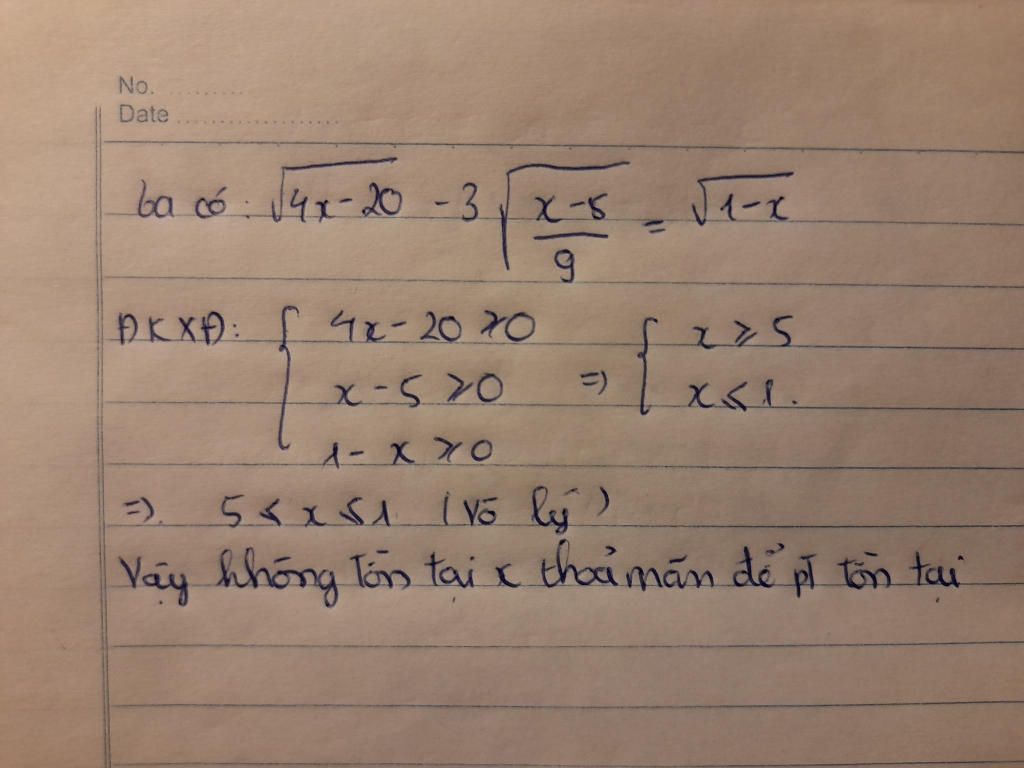 No. ............
Date ......................
ta có: √(4x-20) - 3√((x-5)/9) = √(1-x)
ĐKXĐ: { 4x-20 ≥ 0 ; x-5 ≥ 0 ; 1-x ≥ 0 => { x ≥ 5 ; x ≤ 1.
=> 5 ≤ x ≤ 1 (vô lý)
Vậy không tồn tại x thoả mãn để pt tồn tại